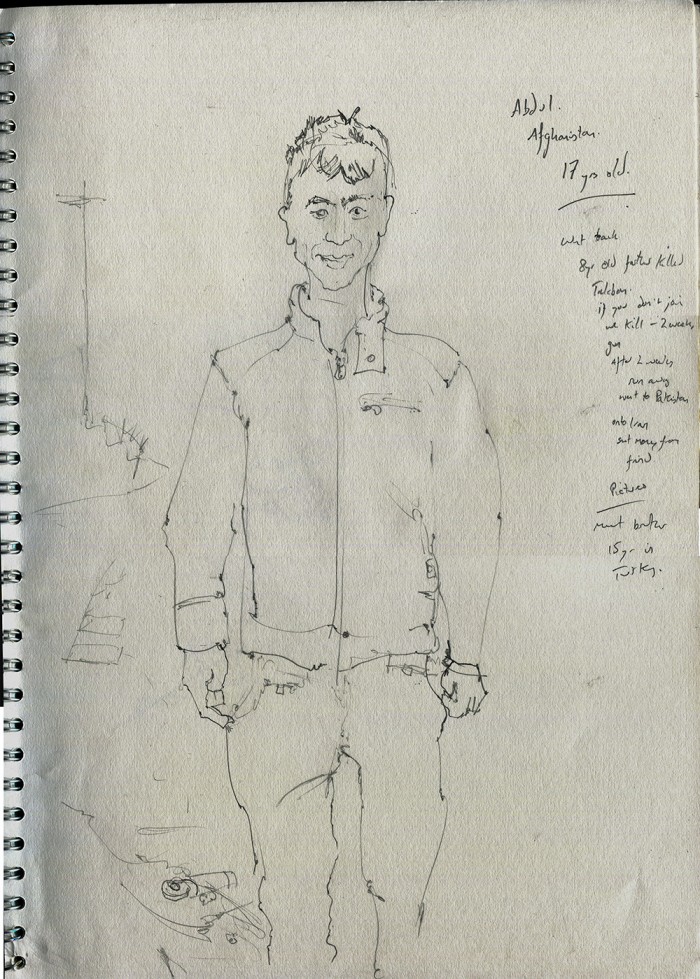 Abdul.
Afghanistan.
17 yrs old.
went back
8yr old father killed
Taleban.
if you don't join
we kill - 2 weeks
gun
after 2 weeks
run away
went to Pakistan
onto Iran
sent money from
friend
Pictures
meet brother
15yr in
Turkey.